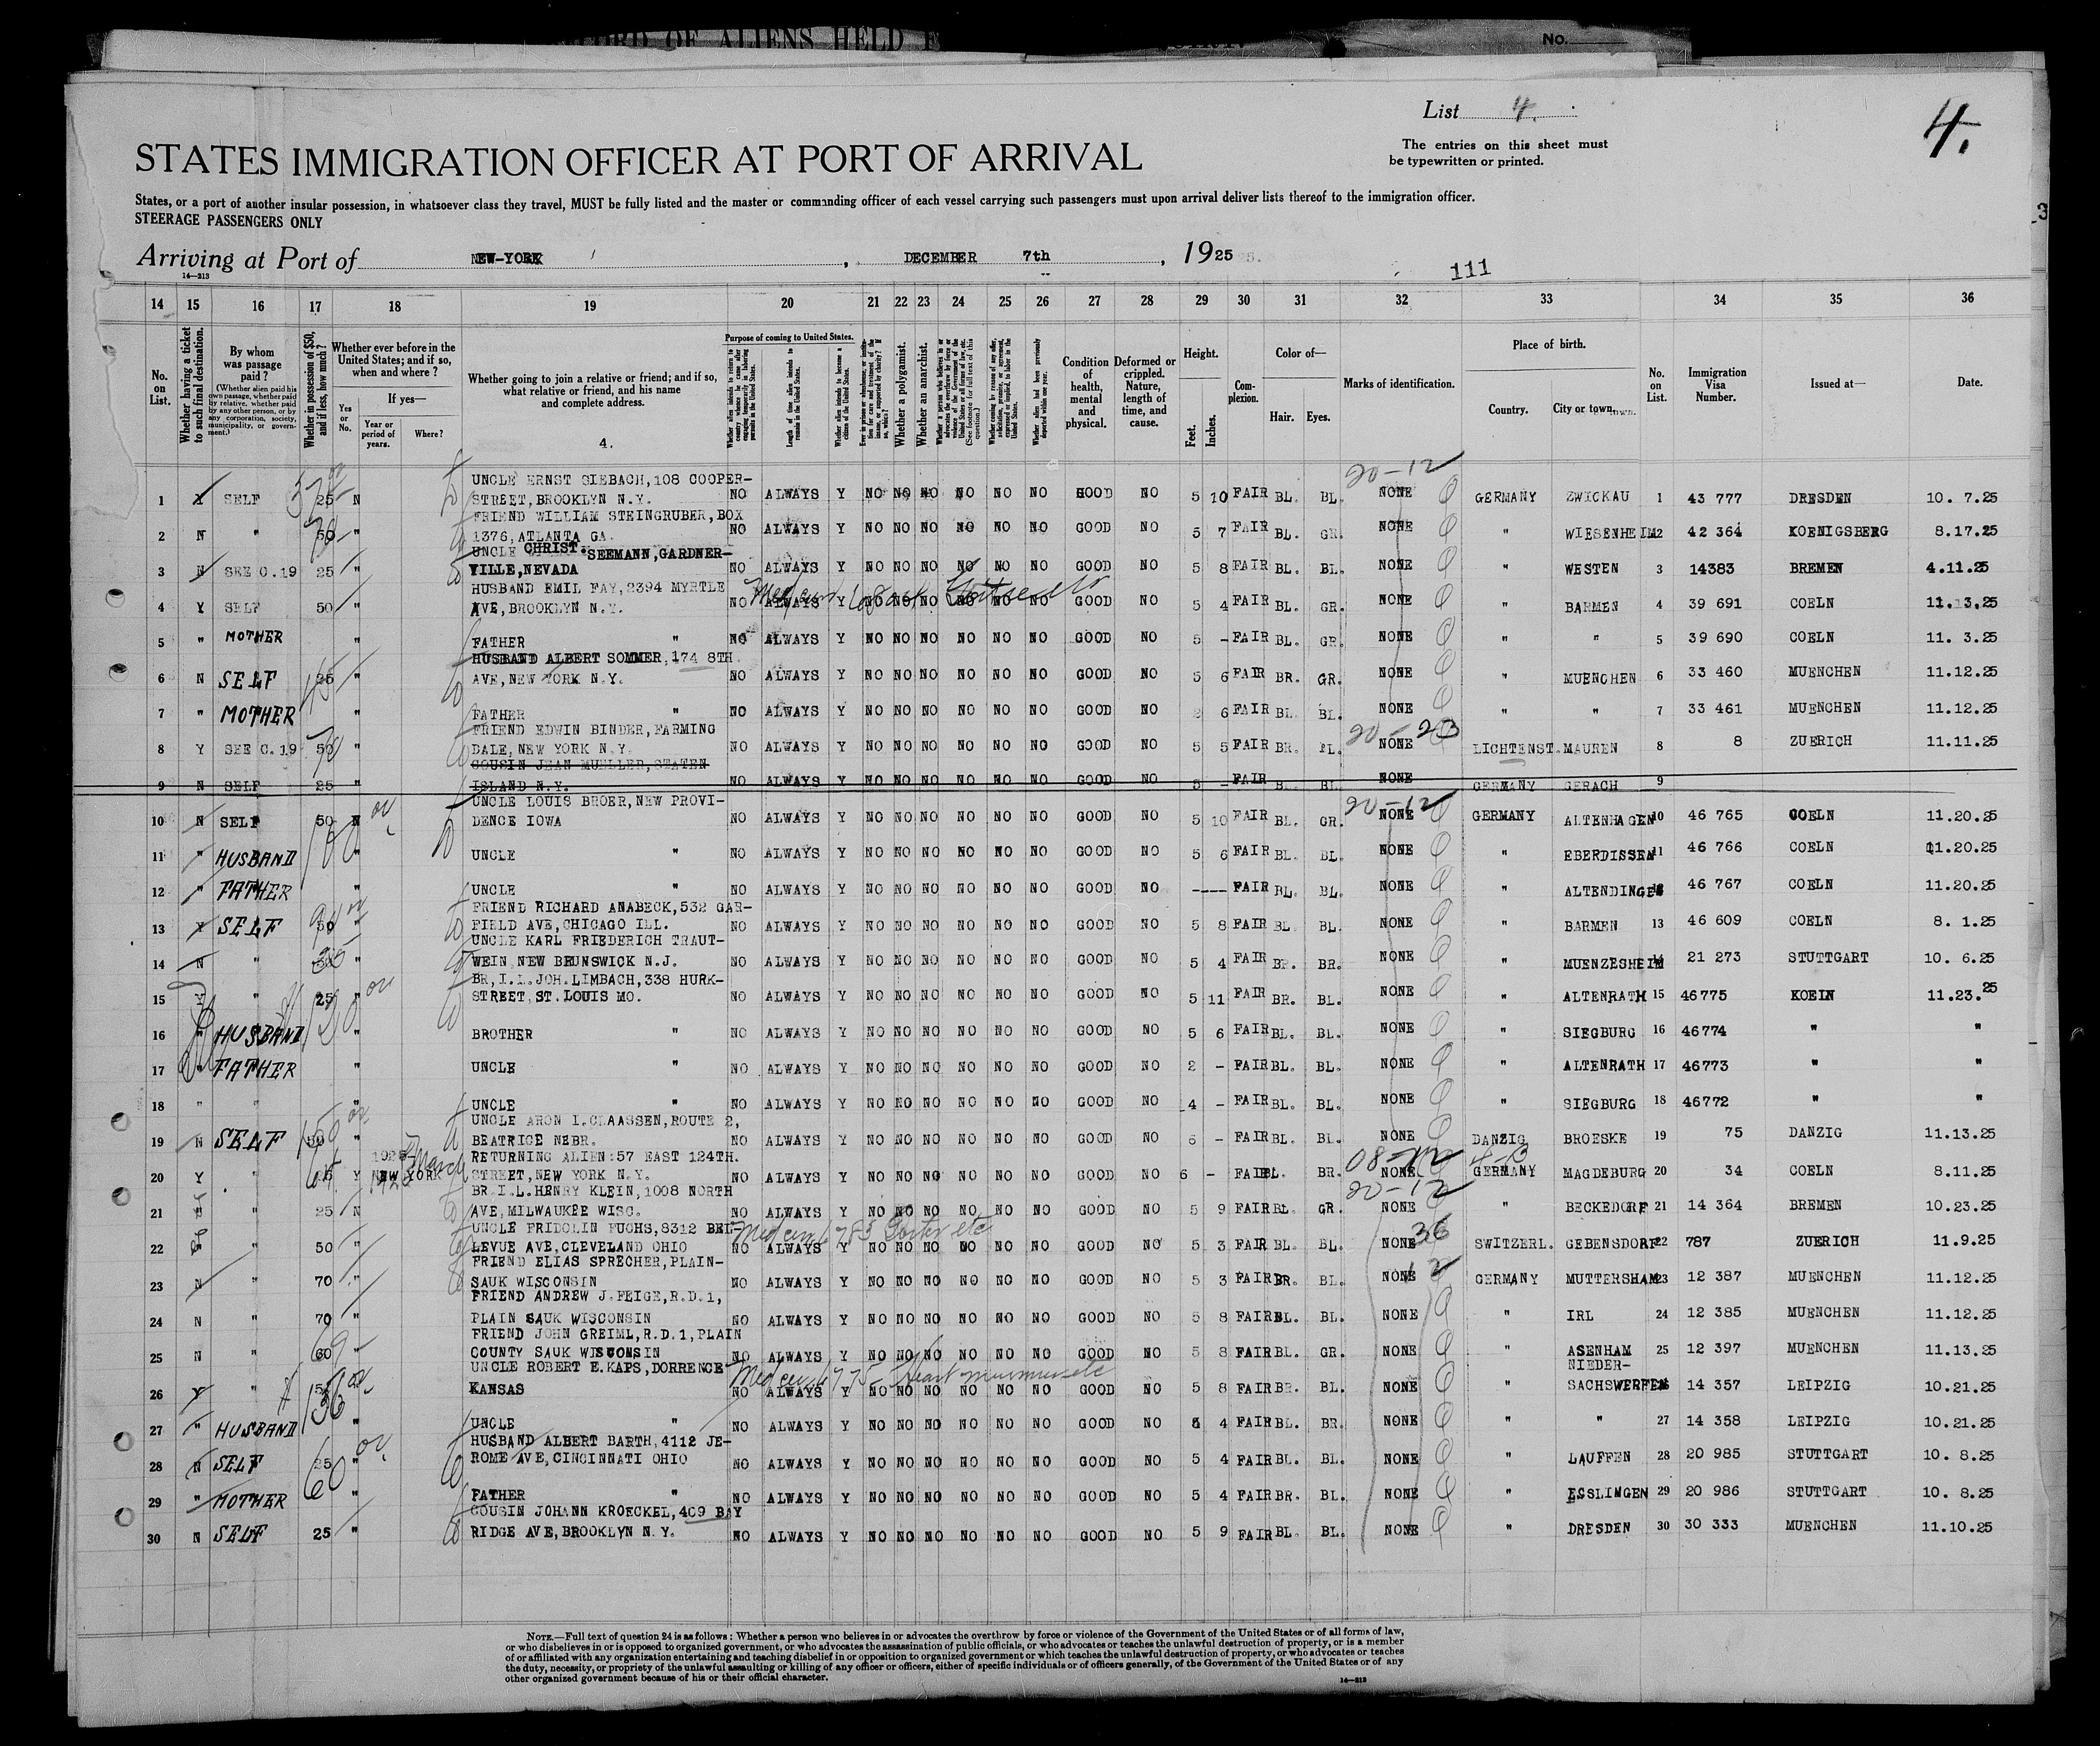 RECORD OF ALIENS HELD F
No.
List 4.
4.
The entries on this sheet must
be typewritten or printed.
STATES IMMIGRATION OFFICER AT PORT OF ARRIVAL
States, or a port of another insular possession, in whatsoever class they travel, MUST be fully listed and the master or commanding officer of each vessel carrying such passengers must upon arrival deliver lists thereof to the immigration officer.
STEERAGE PASSENGERS ONLY
3
Arriving at Port of NEW-YORK , DECEMBER 7th , 1925
14—213
111
14 15 16 17 18 19 20 21 22 23 24 25 26 27 28 29 30 31 32 33 34 35 36
No. on List.
Whether having a ticket to such final destination.
By whom was passage paid?
(Whether alien paid his own passage, whether paid by relative, whether paid by any other person, or by any corporation, society, municipality, or government.)
Whether in possession of $50, and if less, how much?
Whether ever before in the United States; and if so, when and where?
Yes or No.
If yes—
Year or period of years.
Where?
Whether going to join a relative or friend; and if so, what relative or friend, and his name and complete address.
4.
Purpose of coming to United States.
Length of time alien intends to remain in the United States.
Whether alien intends to become a citizen of the United States.
Whether a polygamist.
Whether an anarchist.
Condition of health, mental and physical.
Deformed or crippled. Nature, length of time, and cause.
Height.
Feet.
Inches.
Complexion.
Color of—
Hair.
Eyes.
Marks of identification.
Place of birth.
Country.
City or town.
No. on List.
Immigration Visa Number.
Issued at—
Date.
20-12
UNCLE ERNST SIEBACH, 108 COOPER-
1 Y SELF 25 N STREET, BROOKLYN N.Y. NO ALWAYS Y NO NO NO NO NO NO GOOD NO 5 10 FAIR BL. BL. NONE GERMANY ZWICKAU 1 43 777 DRESDEN 10. 7.25
FRIEND WILLIAM STEINGRUBER, BOX
2 N " 50 " 1376, ATLANTA GA. NO ALWAYS Y NO NO NO NO NO NO GOOD NO 5 7 FAIR BL. GR. NONE " WIESENHEIM 2 42 364 KOENIGSBERG 8.17.25
UNCLE CHRIST. SEEMANN, GARDNER-
3 N SEE C.19 25 " VILLE, NEVADA NO ALWAYS Y NO NO NO NO NO NO GOOD NO 5 8 FAIR BL. BL. NONE " WESTEN 3 14383 BREMEN 4.11.25
HUSBAND EMIL FAY, 2394 MYRTLE
4 Y SELF 50 " AVE, BROOKLYN N.Y. NO ALWAYS Y NO NO NO NO NO NO GOOD NO 5 4 FAIR BL. GR. NONE " BARMEN 4 39 691 COELN 11.13.25
5 " MOTHER " FATHER " NO ALWAYS Y NO NO NO NO NO NO GOOD NO 5 - FAIR BL. GR. NONE " " 5 39 690 COELN 11. 3.25
HUSBAND ALBERT SOMMER, 174 8TH
6 N SELF 25 " AVE, NEW YORK N.Y. NO ALWAYS Y NO NO NO NO NO NO GOOD NO 5 6 FAIR BR. GR. NONE " MUENCHEN 6 33 460 MUENCHEN 11.12.25
7 " MOTHER " FATHER " NO ALWAYS Y NO NO NO NO NO NO GOOD NO 2 6 FAIR BL. BL. NONE " " 7 33 461 MUENCHEN 11.12.25
FRIEND EDWIN BINDER, FARMING 20-23
8 Y SEE C.19 50 " DALE, NEW YORK N.Y. NO ALWAYS Y NO NO NO NO NO NO GOOD NO 5 5 FAIR BR. BL. NONE LICHTENST. MAUREN 8 8 ZUERICH 11.11.25
COUSIN JEAN MUELLER, STATEN
9 N SELF 25 " ISLAND N.Y. NO ALWAYS Y NO NO NO NO NO NO GOOD NO 5 - FAIR BL. BL. NONE GERMANY GERACH 9
UNCLE LOUIS BROER, NEW PROVI- 20-12
10 N SELF 50 N DENCE IOWA NO ALWAYS Y NO NO NO NO NO NO GOOD NO 5 10 FAIR BL. GR. NONE GERMANY ALTENHAGEN 10 46 765 COELN 11.20.25
11 " HUSBAND " UNCLE " NO ALWAYS Y NO NO NO NO NO NO GOOD NO 5 6 FAIR BL. BL. NONE " EBERDISSEN 11 46 766 COELN 11.20.25
12 " FATHER " UNCLE " NO ALWAYS Y NO NO NO NO NO NO GOOD NO ---- FAIR BL. BL. NONE " ALTENDINGEN 12 46 767 COELN 11.20.25
FRIEND RICHARD ANABECK, 532 GAR-
13 Y SELF 50 " FIELD AVE, CHICAGO ILL. NO ALWAYS Y NO NO NO NO NO NO GOOD NO 5 8 FAIR BL. BL. NONE " BARMEN 13 46 609 COELN 8. 1.25
UNCLE KARL FRIEDERICH TRAUT-
14 N " " WEIN, NEW BRUNSWICK N.J. NO ALWAYS Y NO NO NO NO NO NO GOOD NO 5 4 FAIR BR. BR. NONE " MUENZESHEIM 14 21 273 STUTTGART 10. 6.25
BR, I.L. JOH. LIMBACH, 338 HURK-
15 Y " 25 " STREET, ST. LOUIS MO. NO ALWAYS Y NO NO NO NO NO NO GOOD NO 5 11 FAIR BR. BL. NONE " ALTENRATH 15 46775 KOELN 11.23.25
16 " HUSBAND " BROTHER " NO ALWAYS Y NO NO NO NO NO NO GOOD NO 5 6 FAIR BL. BL. NONE " SIEGBURG 16 46774 " "
17 " FATHER " UNCLE " NO ALWAYS Y NO NO NO NO NO NO GOOD NO 2 - FAIR BL. BL. NONE " ALTENRATH 17 46773 " "
18 " " " UNCLE " NO ALWAYS Y NO NO NO NO NO NO GOOD NO 4 - FAIR BL. BL. NONE " SIEGBURG 18 46772 " "
UNCLE ARON I. CLAASSEN, ROUTE 2,
19 N SELF 50 " BEATRICE NEBR. NO ALWAYS Y NO NO NO NO NO NO GOOD NO 6 - FAIR BL. BL. NONE DANZIG BROESKE 19 75 DANZIG 11.13.25
RETURNING ALIEN: 57 EAST 124TH. 08-12 4-3
20 Y " Y NEW YORK STREET, NEW YORK N.Y. NO ALWAYS Y NO NO NO NO NO NO GOOD NO 6 - FAIR BL. BR. NONE GERMANY MAGDEBURG 20 34 COELN 8.11.25
BR. I.L. HENRY KLEIN, 1008 NORTH 20-12
21 " " 25 N AVE, MILWAUKEE WISC. NO ALWAYS Y NO NO NO NO NO NO GOOD NO 5 9 FAIR BL. GR. NONE " BECKEDORF 21 14 364 BREMEN 10.23.25
UNCLE FRIDOLIN FUCHS, 8312 BEL- 36
22 " " 50 " LEVUE AVE, CLEVELAND OHIO NO ALWAYS Y NO NO NO NO NO NO GOOD NO 5 3 FAIR BL. BL. NONE SWITZERL. GEBENSDORF 22 787 ZUERICH 11.9.25
FRIEND ELIAS SPRECHER, PLAIN- 12
23 N " 70 " SAUK WISCONSIN NO ALWAYS Y NO NO NO NO NO NO GOOD NO 5 3 FAIR BR. BL. NONE GERMANY MUTTERSHAM 23 12 387 MUENCHEN 11.12.25
FRIEND ANDREW J. FEIGE, R.D.1,
24 N " 70 " PLAIN SAUK WISCONSIN NO ALWAYS Y NO NO NO NO NO NO GOOD NO 5 8 FAIR BL. BL. NONE " IRL 24 12 385 MUENCHEN 11.12.25
FRIEND JOHN GREIML, R.D.1, PLAIN
25 N " 60 " COUNTY SAUK WISCONSIN NO ALWAYS Y NO NO NO NO NO NO GOOD NO 5 8 FAIR BL. GR. NONE " ASENHAM 25 12 397 MUENCHEN 11.13.25
UNCLE ROBERT E. KAPS, DORRENCE Heart murmur etc NIEDER-
26 Y " " KANSAS NO ALWAYS Y NO NO NO NO NO NO GOOD NO 5 8 FAIR BR. BL. NONE " SACHSWERFEN 26 14 357 LEIPZIG 10.21.25
27 " HUSBAND " UNCLE " NO ALWAYS Y NO NO NO NO NO NO GOOD NO 4 FAIR BL. BR. NONE " " 27 14 358 LEIPZIG 10.21.25
HUSBAND ALBERT BARTH, 4112 JE-
28 N SELF 25 " ROME AVE, CINCINNATI OHIO NO ALWAYS Y NO NO NO NO NO NO GOOD NO 5 4 FAIR BL. BL. NONE " LAUFFEN 28 20 985 STUTTGART 10. 8.25
29 " MOTHER " FATHER " NO ALWAYS Y NO NO NO NO NO NO GOOD NO 5 4 FAIR BR. BL. NONE " EGSLINGEN 29 20 986 STUTTGART 10. 8.25
COUSIN JOHANN KROECKEL, 409 BAY
30 N SELF 25 " RIDGE AVE, BROOKLYN N.Y. NO ALWAYS Y NO NO NO NO NO NO GOOD NO 5 9 FAIR BL. BL. NONE " DRESDEN 30 30 333 MUENCHEN 11.10.25
NOTE.—Full text of question 24 is as follows: Whether a person who believes in or advocates the overthrow by force or violence of the Government of the United States or of all forms of law,
or who disbelieves in or is opposed to organized government, or who advocates the assassination of public officials, or who advocates or teaches the unlawful destruction of property, or is a member
of or affiliated with any organization entertaining and teaching disbelief in or opposition to organized government or which teaches the unlawful destruction of property, or who advocates or teaches
the duty, necessity, or propriety of the unlawful assaulting or killing of any officer or officers, either of specific individuals or of officers generally, of the Government of the United States or of any
other organized government because of his or their official character.
14—213